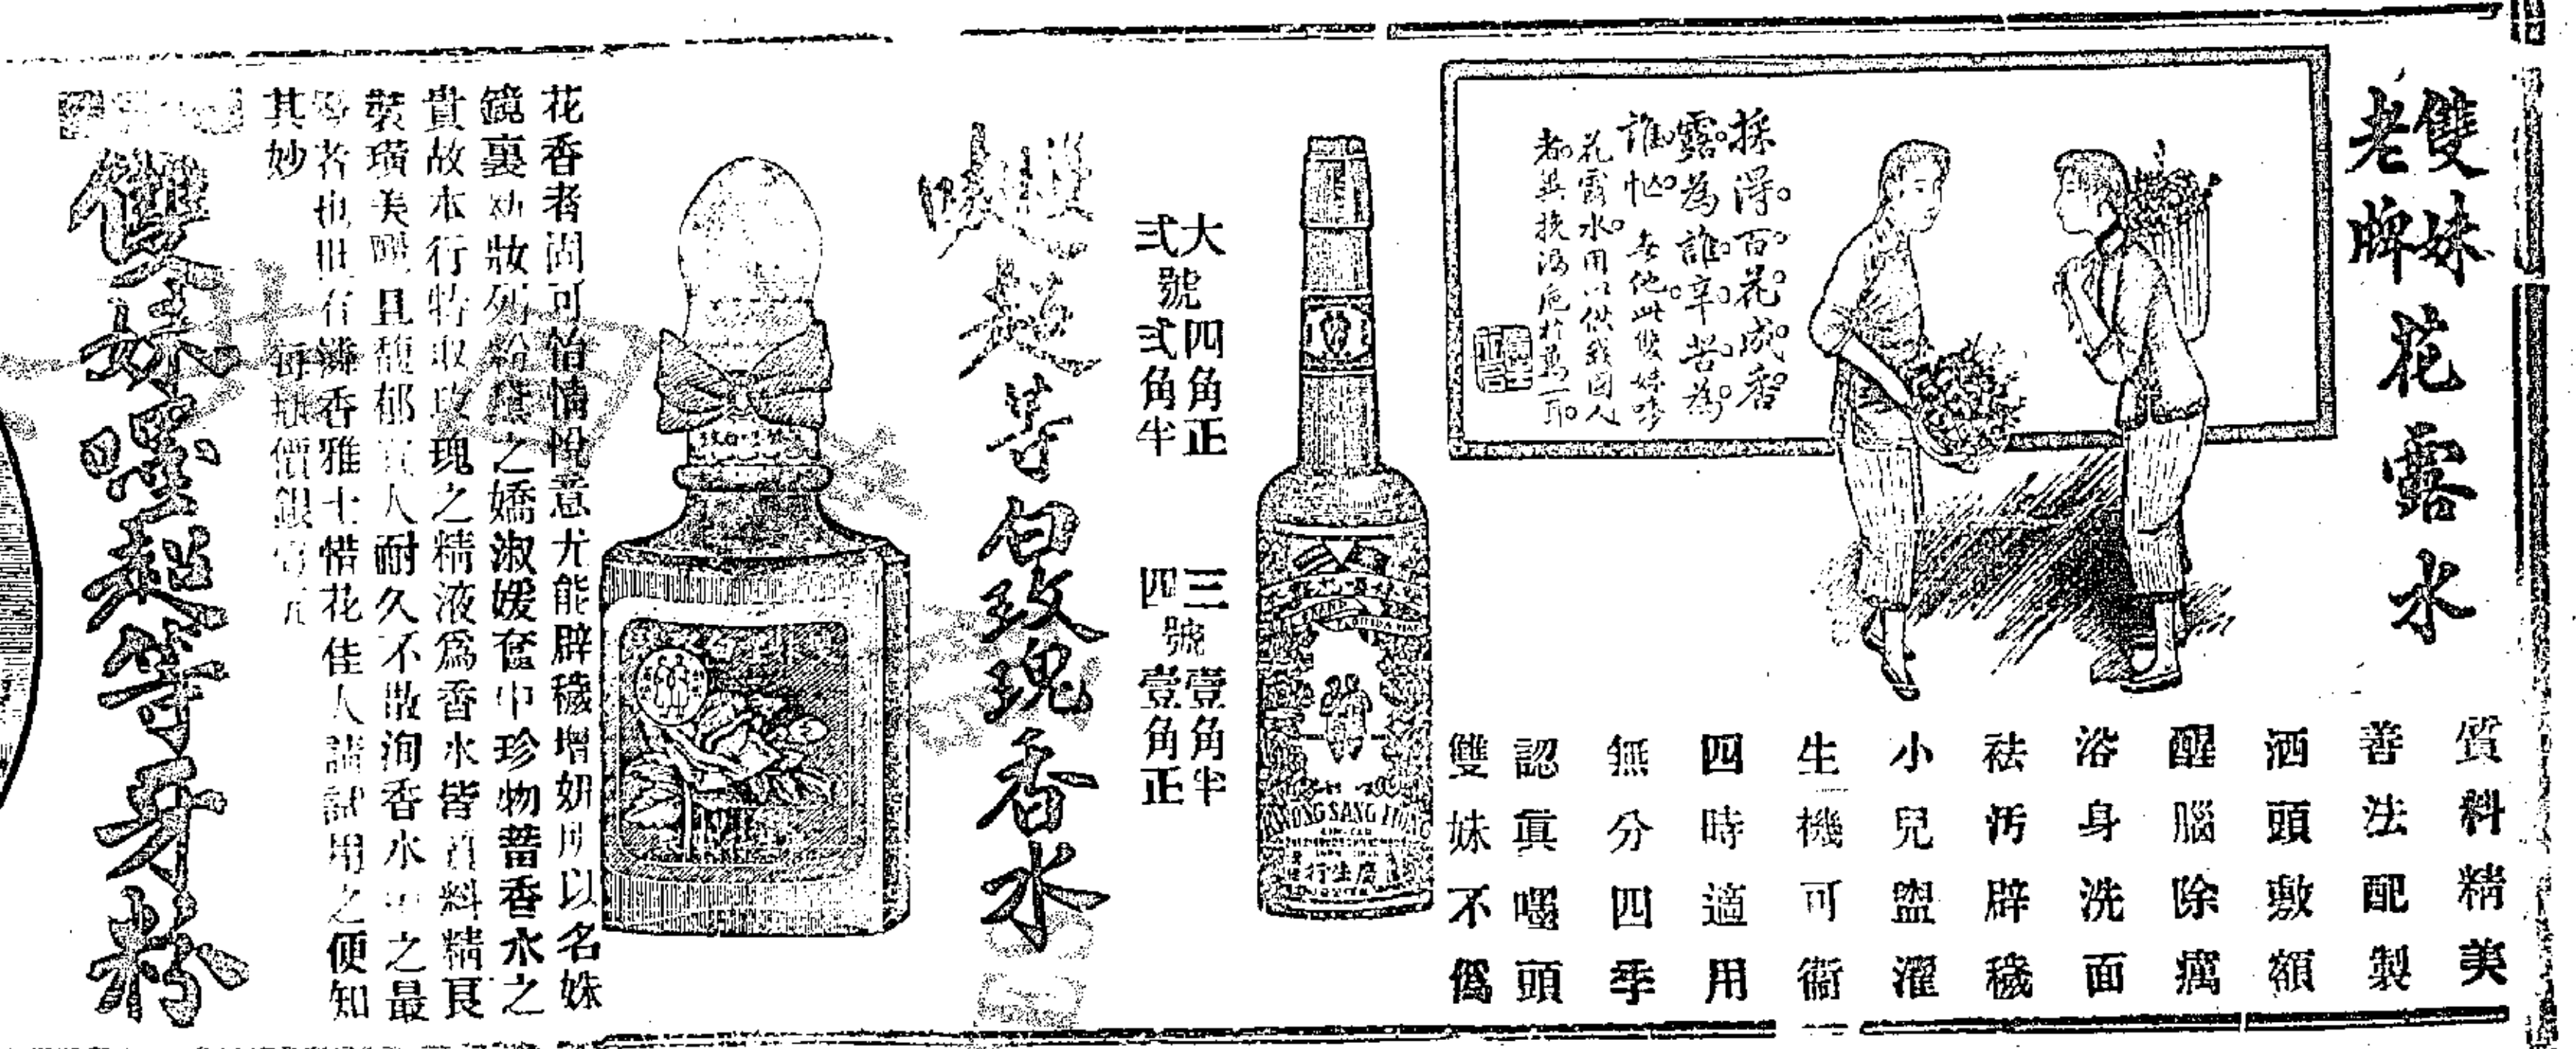 雙妹
老牌
花露水
採得百花成香
露為誰辛苦為
誰忙 無他此雙妹嘜
花露水用以供我國人
者異挽漏巵於萬一耳
質料精美
善法配製
洒頭敷額
醒腦除癘
浴身洗面
祛污辟穢
小兒盥濯
生機可衞
四時適用
無分四季
認眞嘜頭
雙妹不僞
KWONG SANG HONG
廣生行
大號四角正
弍號弍角半
三號壹角半
四號壹角正
雙妹嘜超等白玫瑰香水
花香者尚可怡情悅意尤能辟穢增妍所以名姝
鏡裏助妝列粉黛之嬌淑媛奩巾珍物蓄香水之
貴故本行特取玫瑰之精液爲香水皆首料精良
裝璜美麗且馥郁宜人耐久不散洵香水中之最
等者也世有嗜香雅士惜花佳人請試用之便知
其妙 每瓶價銀
雙妹嘜超等牙粉